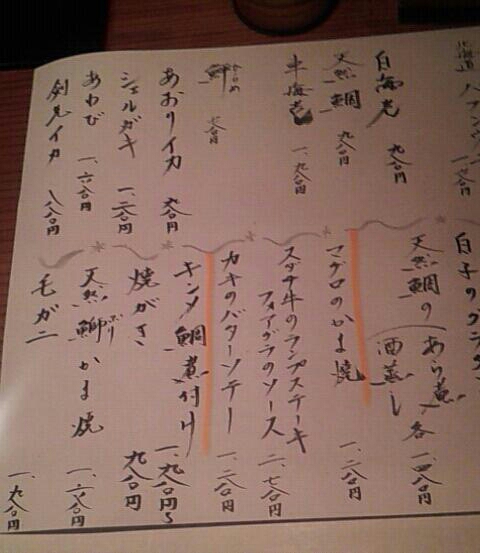 北海道
白海老 九八〇円
天然鯛 九八〇円
車海老 一、九八〇円
あおりイカ 九八〇円
シェルガキ 一、二八〇円
あわび 一、六八〇円
剣先イカ 八八〇円
白子のグラタン
天然鯛の あら煮 酒蒸し 各一、四八〇円
マグロのかま焼 一、二八〇円
スダチ牛のランプステーキ
フォアグラのソース 二、七八〇円
カキのバターソテー 一、二八〇円
キンメ鯛煮付け 一、九八〇円〜
焼がき 九八〇円
天然鰤かま焼 一、六八〇円
ぶり
毛ガニ 一、九八〇円